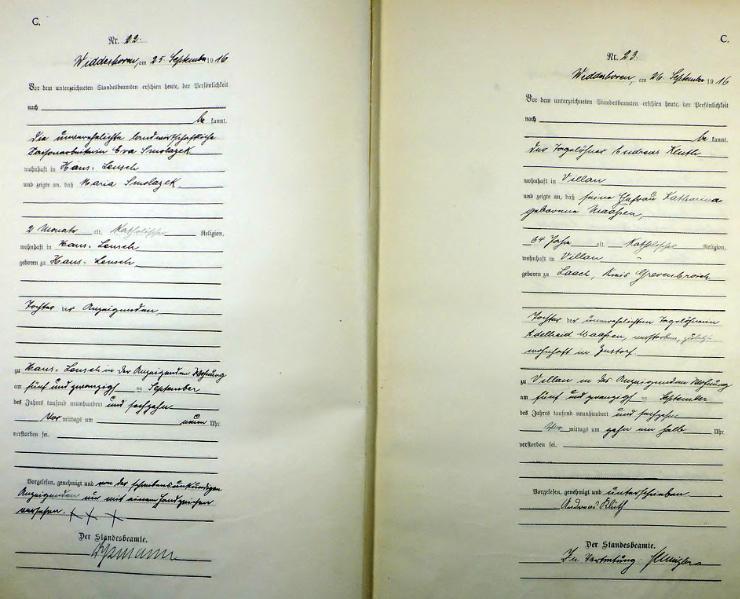 C.
Nr. 22.
Weddershoven, am 25. September 1916
Vor dem unterzeichneten Standesbeamten erschien heute, der Persönlichkeit
nach
be kannt,
die unverehelichte landwirtschaftliche
Saisonarbeiterin Eva Smolazek
wohnhaft in Haus-Leusch
und zeigte an, daß Maria Smolazek
2 Monate alt, Katholische Religion,
wohnhaft in Haus-Leusch
geboren zu Haus-Leusch
Tochter der Anzeigenden
zu Haus-Leusch in der Anzeigenden Wohnung
am fünf und zwanzigsten September
des Jahres tausend neunhundert und sechzehn
Vor mittags um neun Uhr
verstorben sei.
Vorgelesen, genehmigt und von der schreibensunkundigen
Anzeigenden nur mit einem Handzeichen
versehen. x x x
Der Standesbeamte.
C.
Nr. 23.
Weddershoven, am 26. September 1916
Vor dem unterzeichneten Standesbeamten erschien heute, der Persönlichkeit
nach
be kannt,
der Tagelöhner Andreas Kluth
wohnhaft in Villau
und zeigte an, daß seine Ehefrau Katharina
geborene Maaßen,
64 Jahre alt, Katholische Religion,
wohnhaft in Villau
geboren zu Laach, Kreis Grevenbroich
Tochter der unverehelichten Tagelöhnerin
Adelheid Maaßen, verstorben, zuletzt
wohnhaft in Gustorf
zu Villau in der Anzeigenden Wohnung
am fünf und zwanzigsten September
des Jahres tausend neunhundert und sechzehn
Vor mittags um zehn ein halb Uhr
verstorben sei.
Vorgelesen, genehmigt und unterschrieben
Andreas Kluth
Der Standesbeamte.
In Vertretung